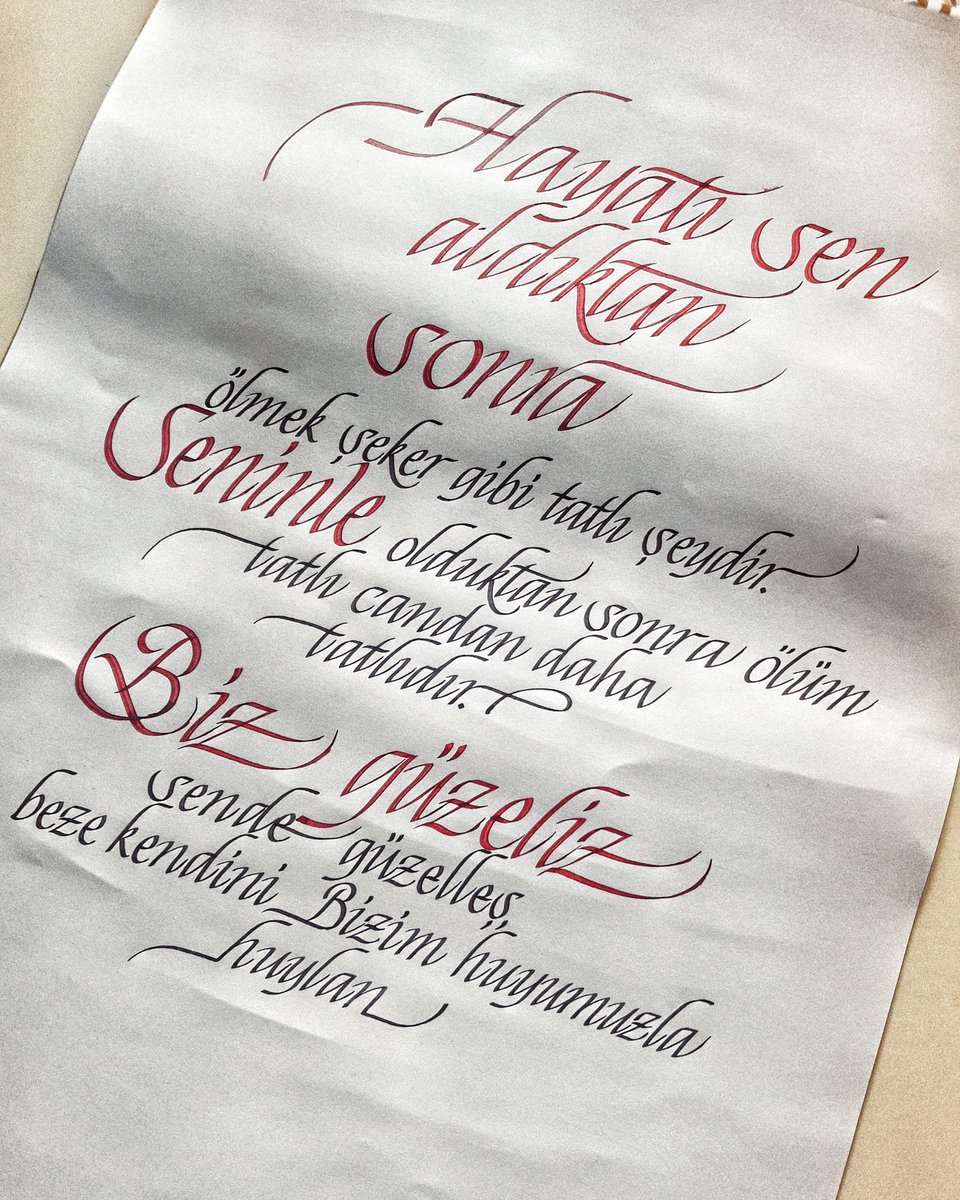 Hayatı sen
aldıktan
sonra
ölmek şeker gibi tatlı şeydir.
Seninle olduktan sonra ölüm
tatlı candan daha
tatlıdır.
Biz güzeliz
sende güzelleş,
beze kendini Bizim huyumuzla
huylan